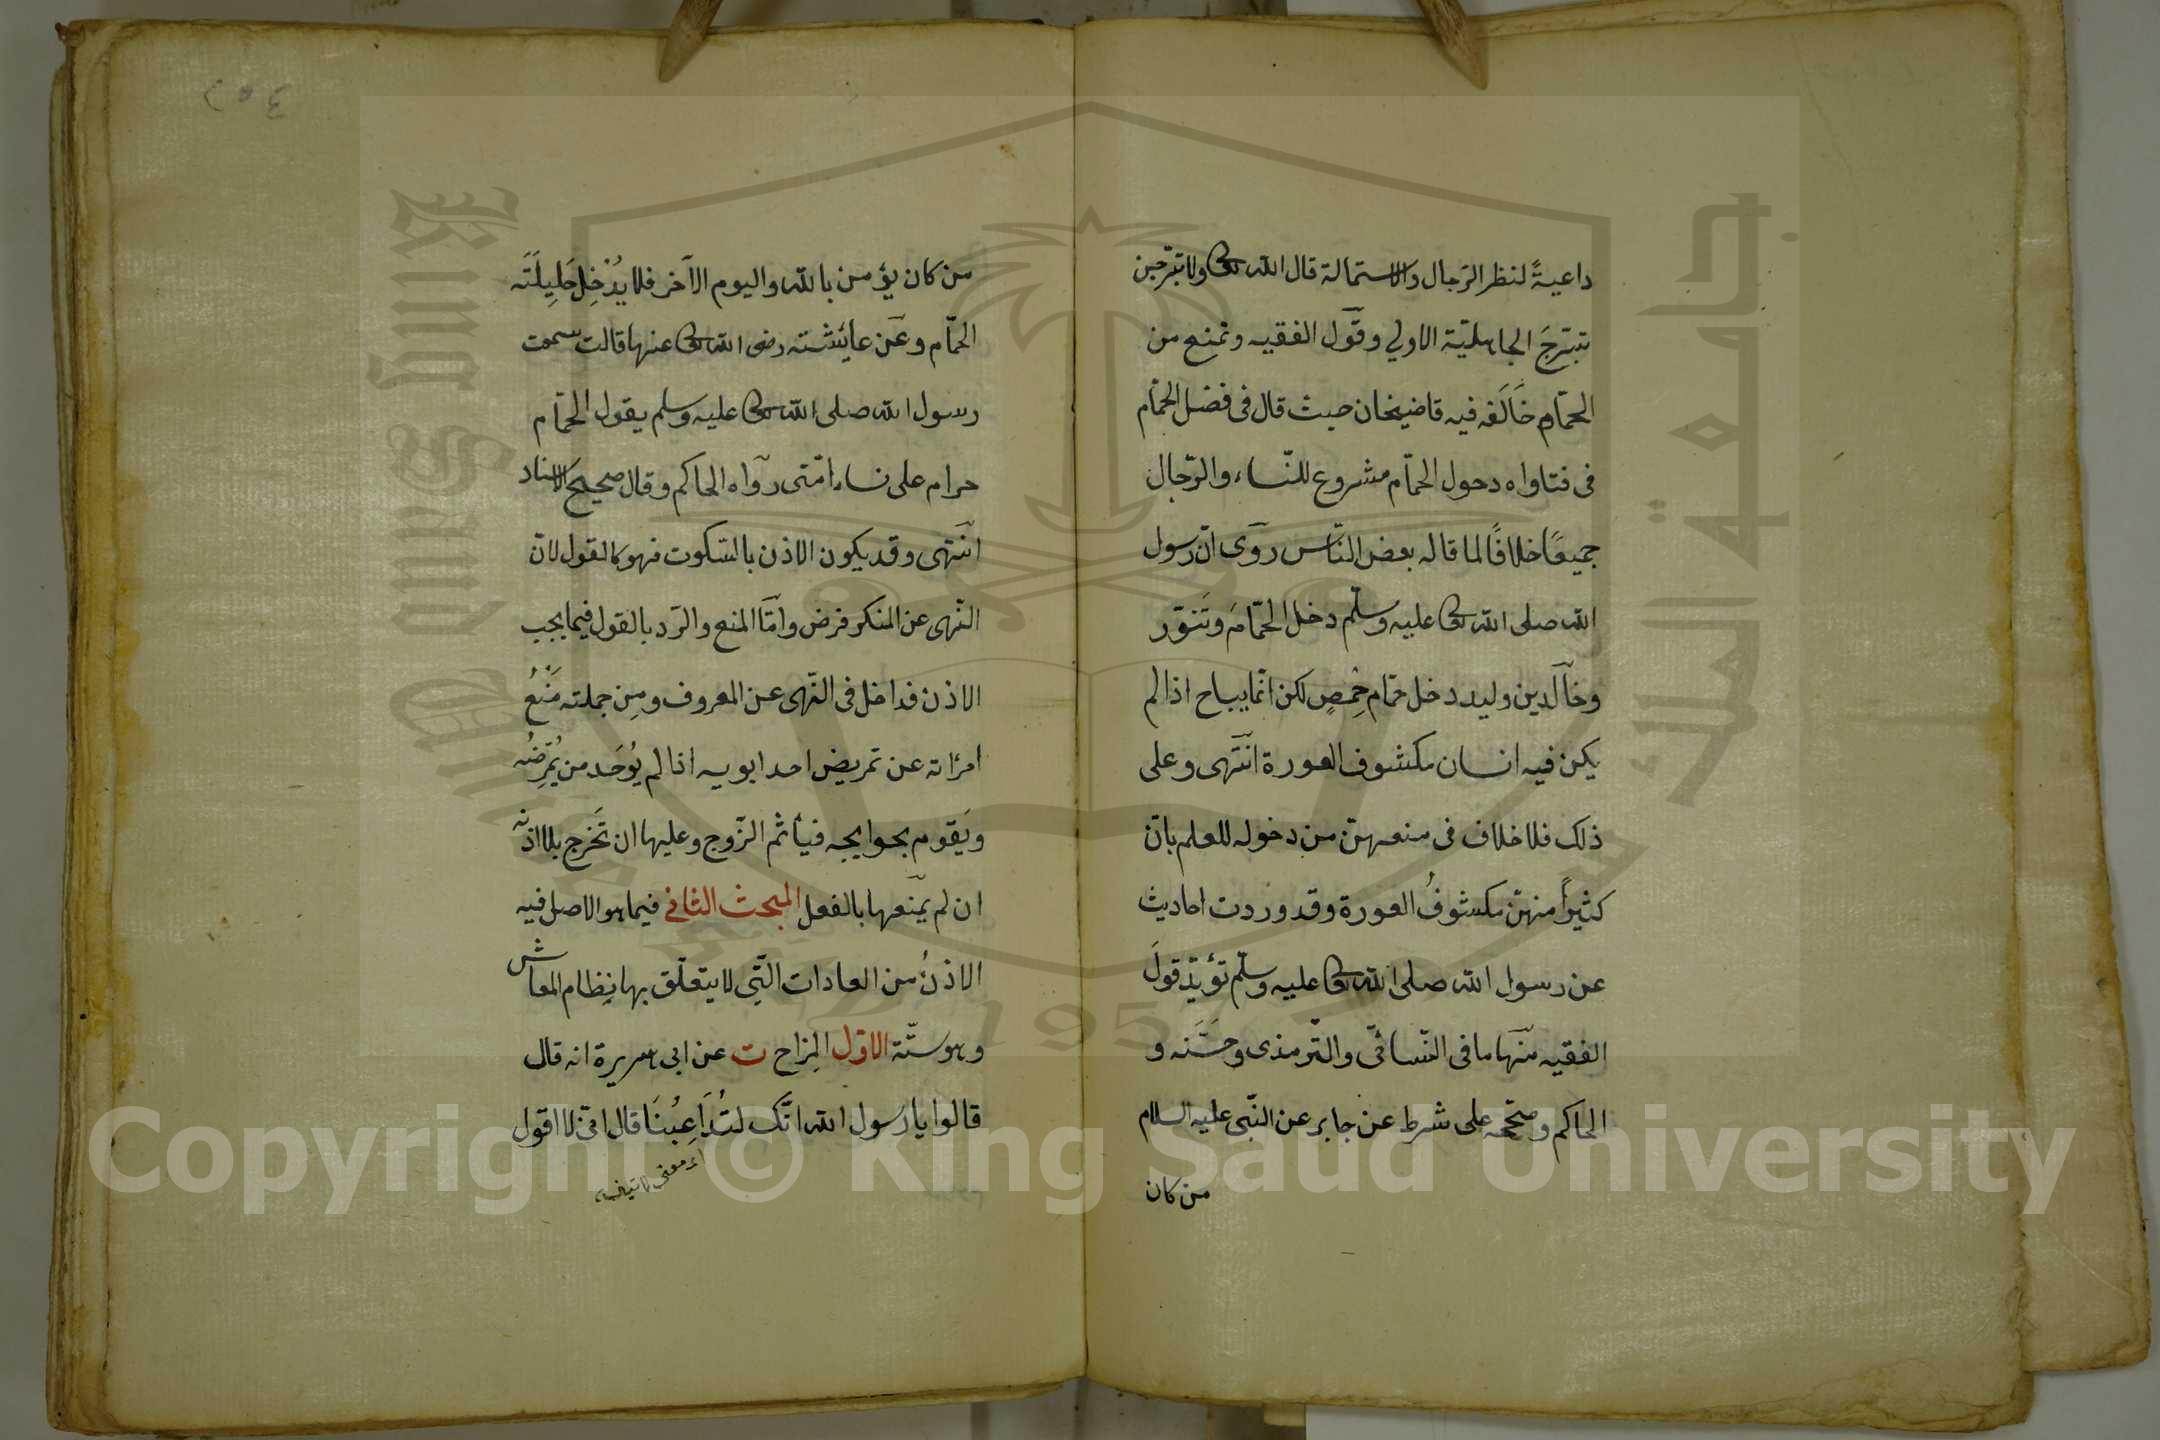 داعيةً لنظر الرّجال والاستمالة قال الله تعالى ولا تبرّجن
تبرّجَ الجاهليّة الاولي وقول الفقيه وتمنع من
الحمّام خالفه فيه قاضيخان حيث قال فى فصل الحمّام
فى فتاواه دحول الحمّام مشروع للنّساء والرّجال
جميعًا خلافًا لما قاله بعض النّاس روى انّ رسول
الله صلى الله تعالى عليه وسلّم دخل الحمّامَ وتَنوّر
وخالدبن وليد دخل حمّام حِمصٍ لكن انّما يباح اذا لم
يكن فيه انسان مكشوف العورة انتهى وعلى
ذلك فلا خلاف فى منعهنّ من دخوله للعلم بانّ
كثيرًا منهنّ مكشوفُ العورة وقد وردت احاديث
عن رسول الله صلى الله تعالى عليه وسلّم تؤيّد قولَ
الفقيه منها ما فى النّسائىّ والتّرمذى وحَسَّنَه و
الحاكم وصحّحه على شرط عن جابر عن النّبى عليه السلام
من كان
من كان يؤمن بالله واليوم الآخر فلا يُدْخِل حَلِيلَتَه
الحمّام وعن عايشته رضى الله تعالى عنها قالت سمعت
رسول الله صلى الله تعالى عليه وسلم يقول الحمّام
حرام على نساء امّتى رواه الحاكم وقال صحيح الاسناد
انتهى وقد يكون الاذن بالسّكوت فهو كالقول لانّ
النّهى عن المنكر فرض وامّا المنع والرّد بالقول فيما يجب
الاذن فداخل فى النّهى عن المعروف ومِن جملته مَنْعُ
امرأته عن تمريض احد ابويه اذا لم يُوْجَد من يُمَرِّضُه
ويَقوم بحوايجه فيأثم الزّوج وعليها ان تَخرج بلا اذنه
ان لم يمنعها بالفعل المبحث الثانى فيما هو الاصل فيه
الاذنُ من العادات الّتى لا يتعلّق بها نِظام المعاش
وهو ستّة الاوّل المِزاح ت عن ابى هريرة انه قال
قالوا يا رسول الله انّك لتُدَاعِبُنَا قال انّى لا اقول
King Saud University
جامعة الملك
195
Copyright © King Saud University